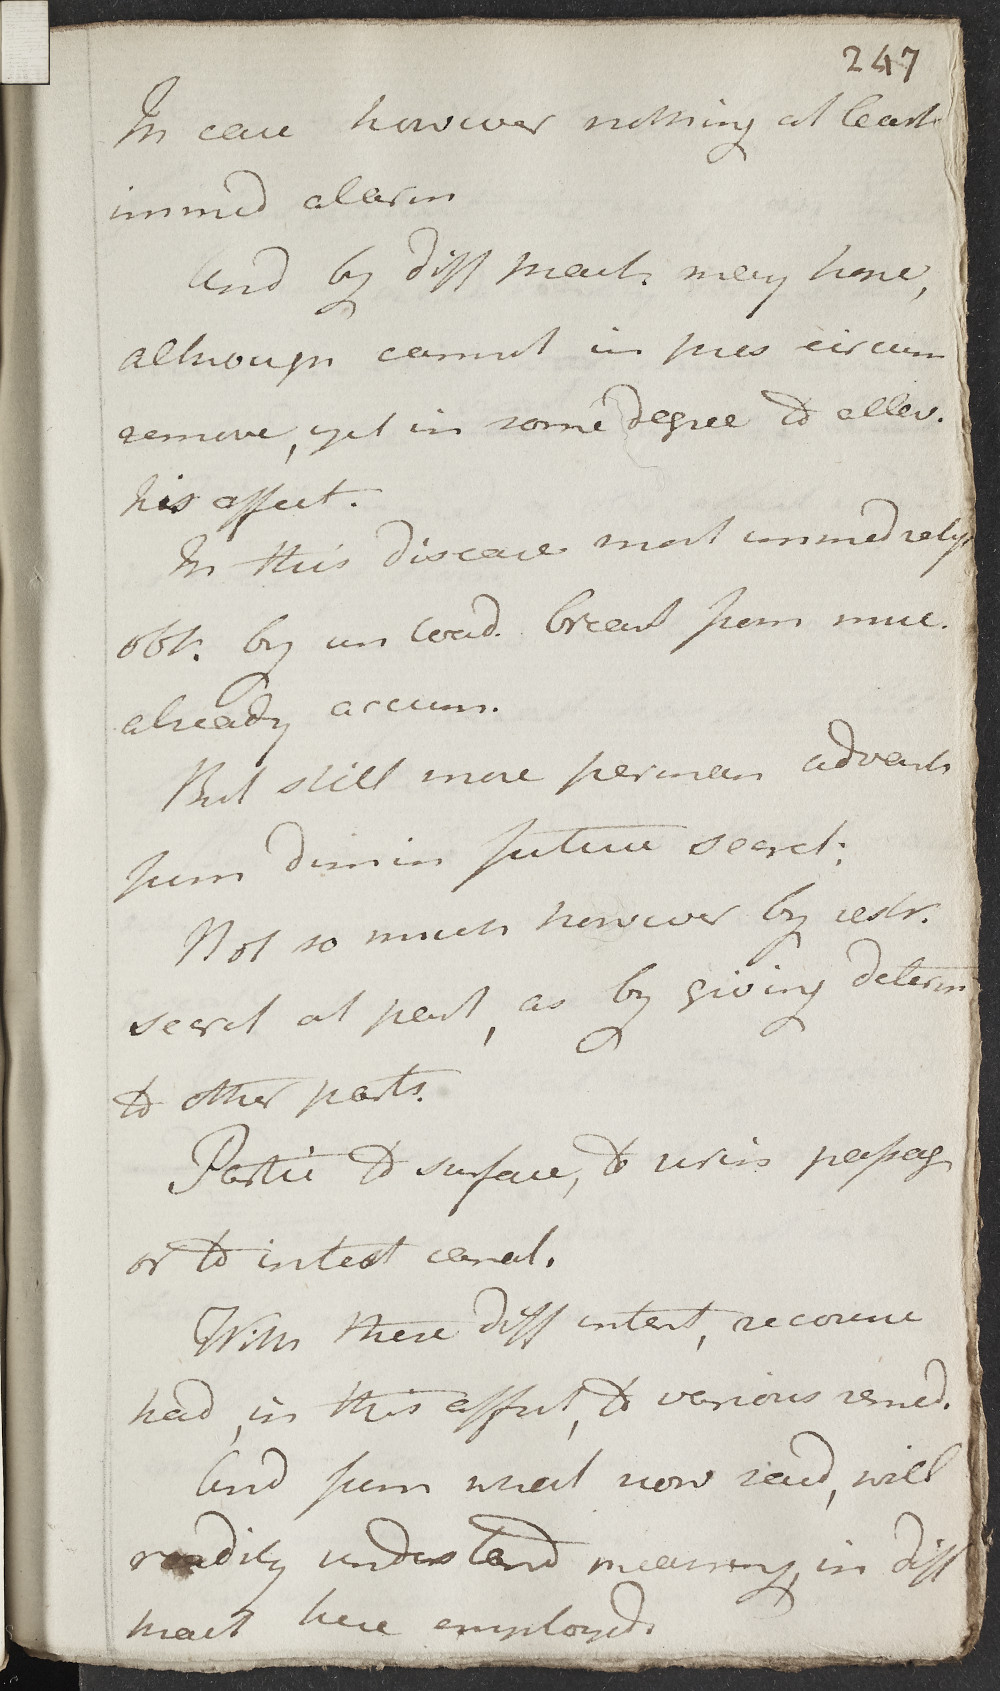 247
In case however nothing at least
immed alarm
And by diff pract. may hope,
although cannot in pres circum
remove, yet in some degree to allev.
his affect.
In this disease most immed rely
obt. by un load. breast from muc.
already accum.
But still more perman advant
from dimin future secret:
Not so much however by restr.
secret at part, as by giving determ
to other parts.
Partic to surface, to urin passag
or to intest canal.
With these diff intent, recourse
had, in this affect, to various remed.
And from what now said, will
readily understand meaning, in diff
pract here employed.